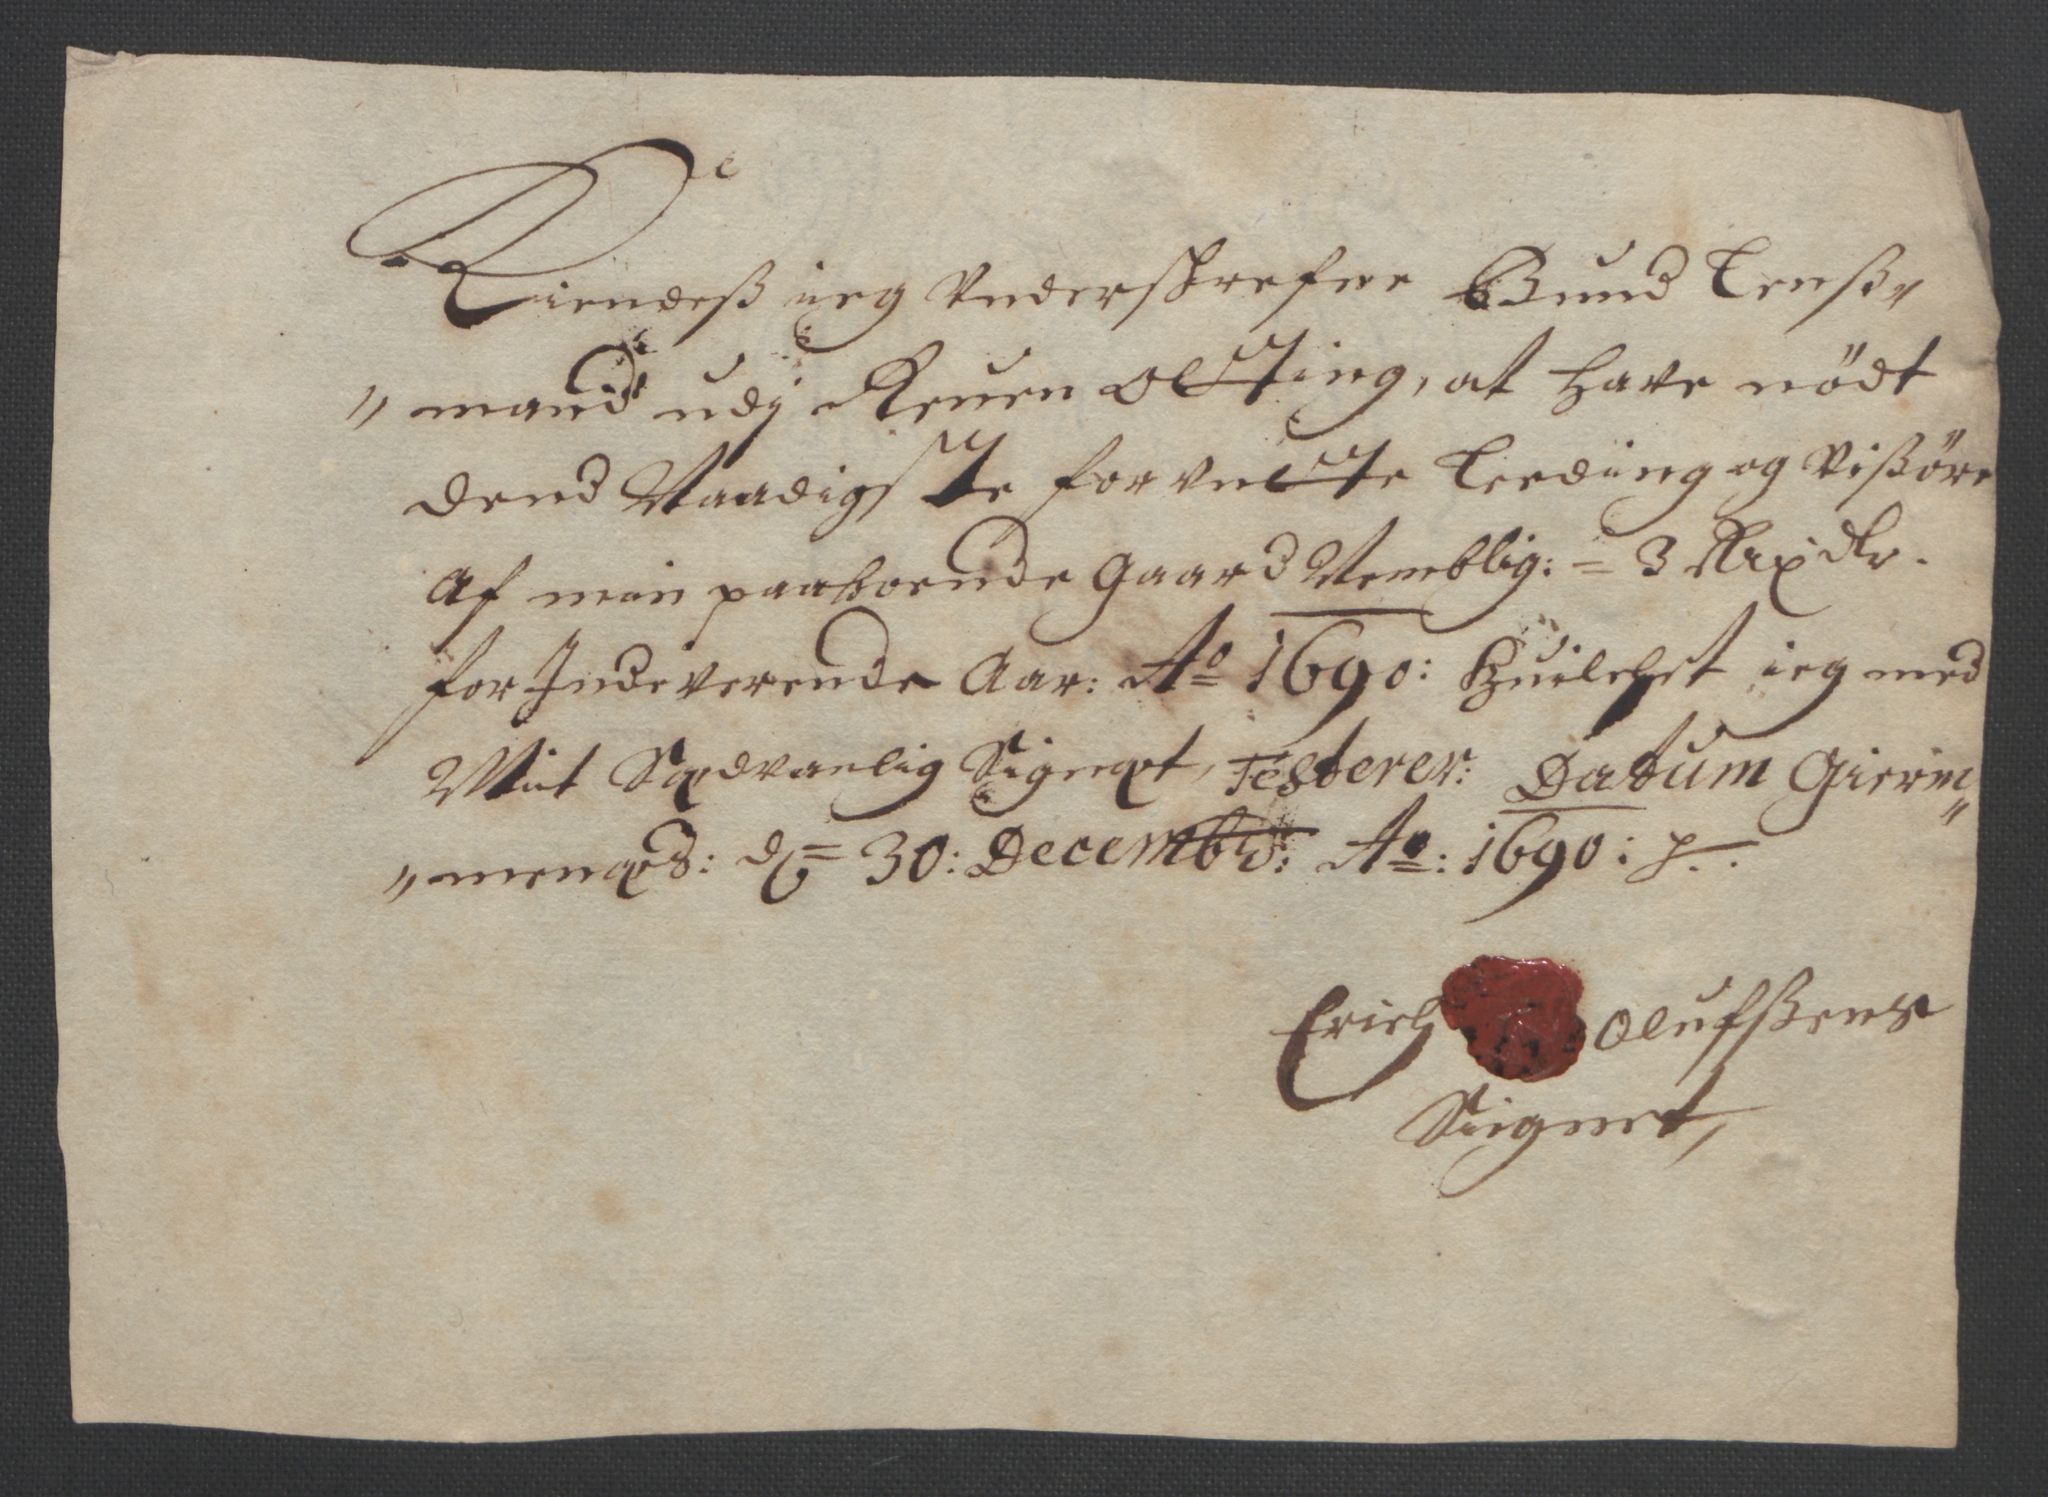 Kiendeß ieg Underskrefne Bund Lenß=
=mand udj Reuen Otting, at have nødt
dend Naadigste forundte Leeding og Vißøre
Af min paaboende Gaard Nemblig: = 3 Rixdlr.
for Indeverende Aar: Ao 1690: Huilchet ieg med
Mit Sædvanlig Signet, Testerer: Datum Gierm=
=menæs: d = 30: Decembr: Ao: 1690:
Erich Olufßens
Siignet,